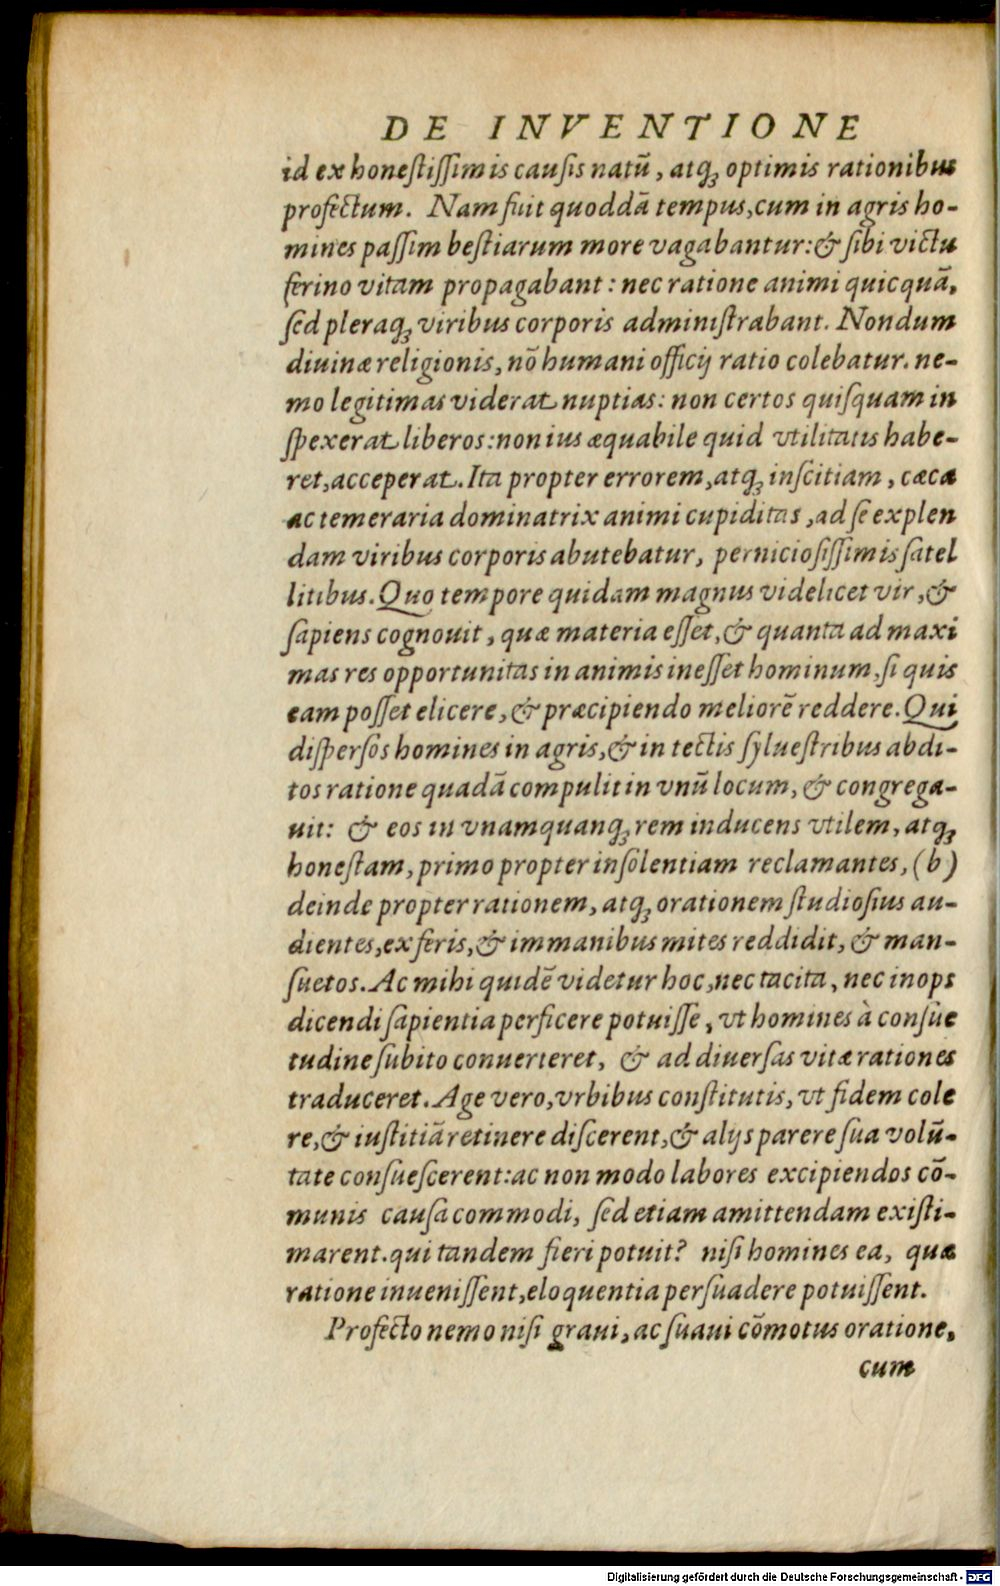 DE INVENTIONE
id ex honestissimis causis natũ, atq́ꝫ optimis rationibus
profectum. Nam fuit quoddã tempus, cum in agris ho-
mines passim bestiarum more vagabantur: & sibi victu
ferino vitam propagabant: nec ratione animi quicquã,
sed pleraq́ꝫ viribus corporis administrabant. Nondum
diuinæ religionis, nõ humani officij ratio colebatur. ne-
mo legitimas viderat nuptias: non certos quisquam in
spexerat liberos: non ius æquabile quid vtilitatis habe-
ret, acceperat. Ita propter errorem, atq́ꝫ inscitiam, cæca
ac temeraria dominatrix animi cupiditas, ad se explen
dam viribus corporis abutebatur, perniciosissimis satel
litibus. Quo tempore quidam magnus videlicet vir, &
sapiens cognouit, quæ materia esset, & quanta ad maxi
mas res opportunitas in animis inesset hominum, si quis
eam posset elicere, & præcipiendo meliorẽ reddere. Qui
dispersos homines in agris, & in tectis syluestribus abdi-
tos ratione quadã compulit in vnũ locum, & congrega-
uit: & eos in vnamquanq́ꝫ rem inducens vtilem, atq́ꝫ
honestam, primo propter insolentiam reclamantes, (b)
deinde propter rationem, atq́ꝫ orationem studiosius au-
dientes, ex feris, & immanibus mites reddidit, & man-
suetos. Ac mihi quidẽ videtur hoc, nec tacita, nec inops
dicendi sapientia perficere potuisse, vt homines à consue
tudine subito conuerteret, & ad diuersas vitæ rationes
traduceret. Age vero, vrbibus constitutis, vt fidem cole
re, & iustitiã retinere discerent, & alijs parere sua volũ-
tate consuescerent: ac non modo labores excipiendos cõ-
munis causa commodi, sed etiam amittendam existi-
marent. qui tandem fieri potuit? nisi homines ea, quæ
ratione inuenissent, eloquentia persuadere potuissent.
Profecto nemo nisi graui, ac suaui cõmotus oratione,
cum
Digitalisierung gefördert durch die Deutsche Forschungsgemeinschaft - DFG